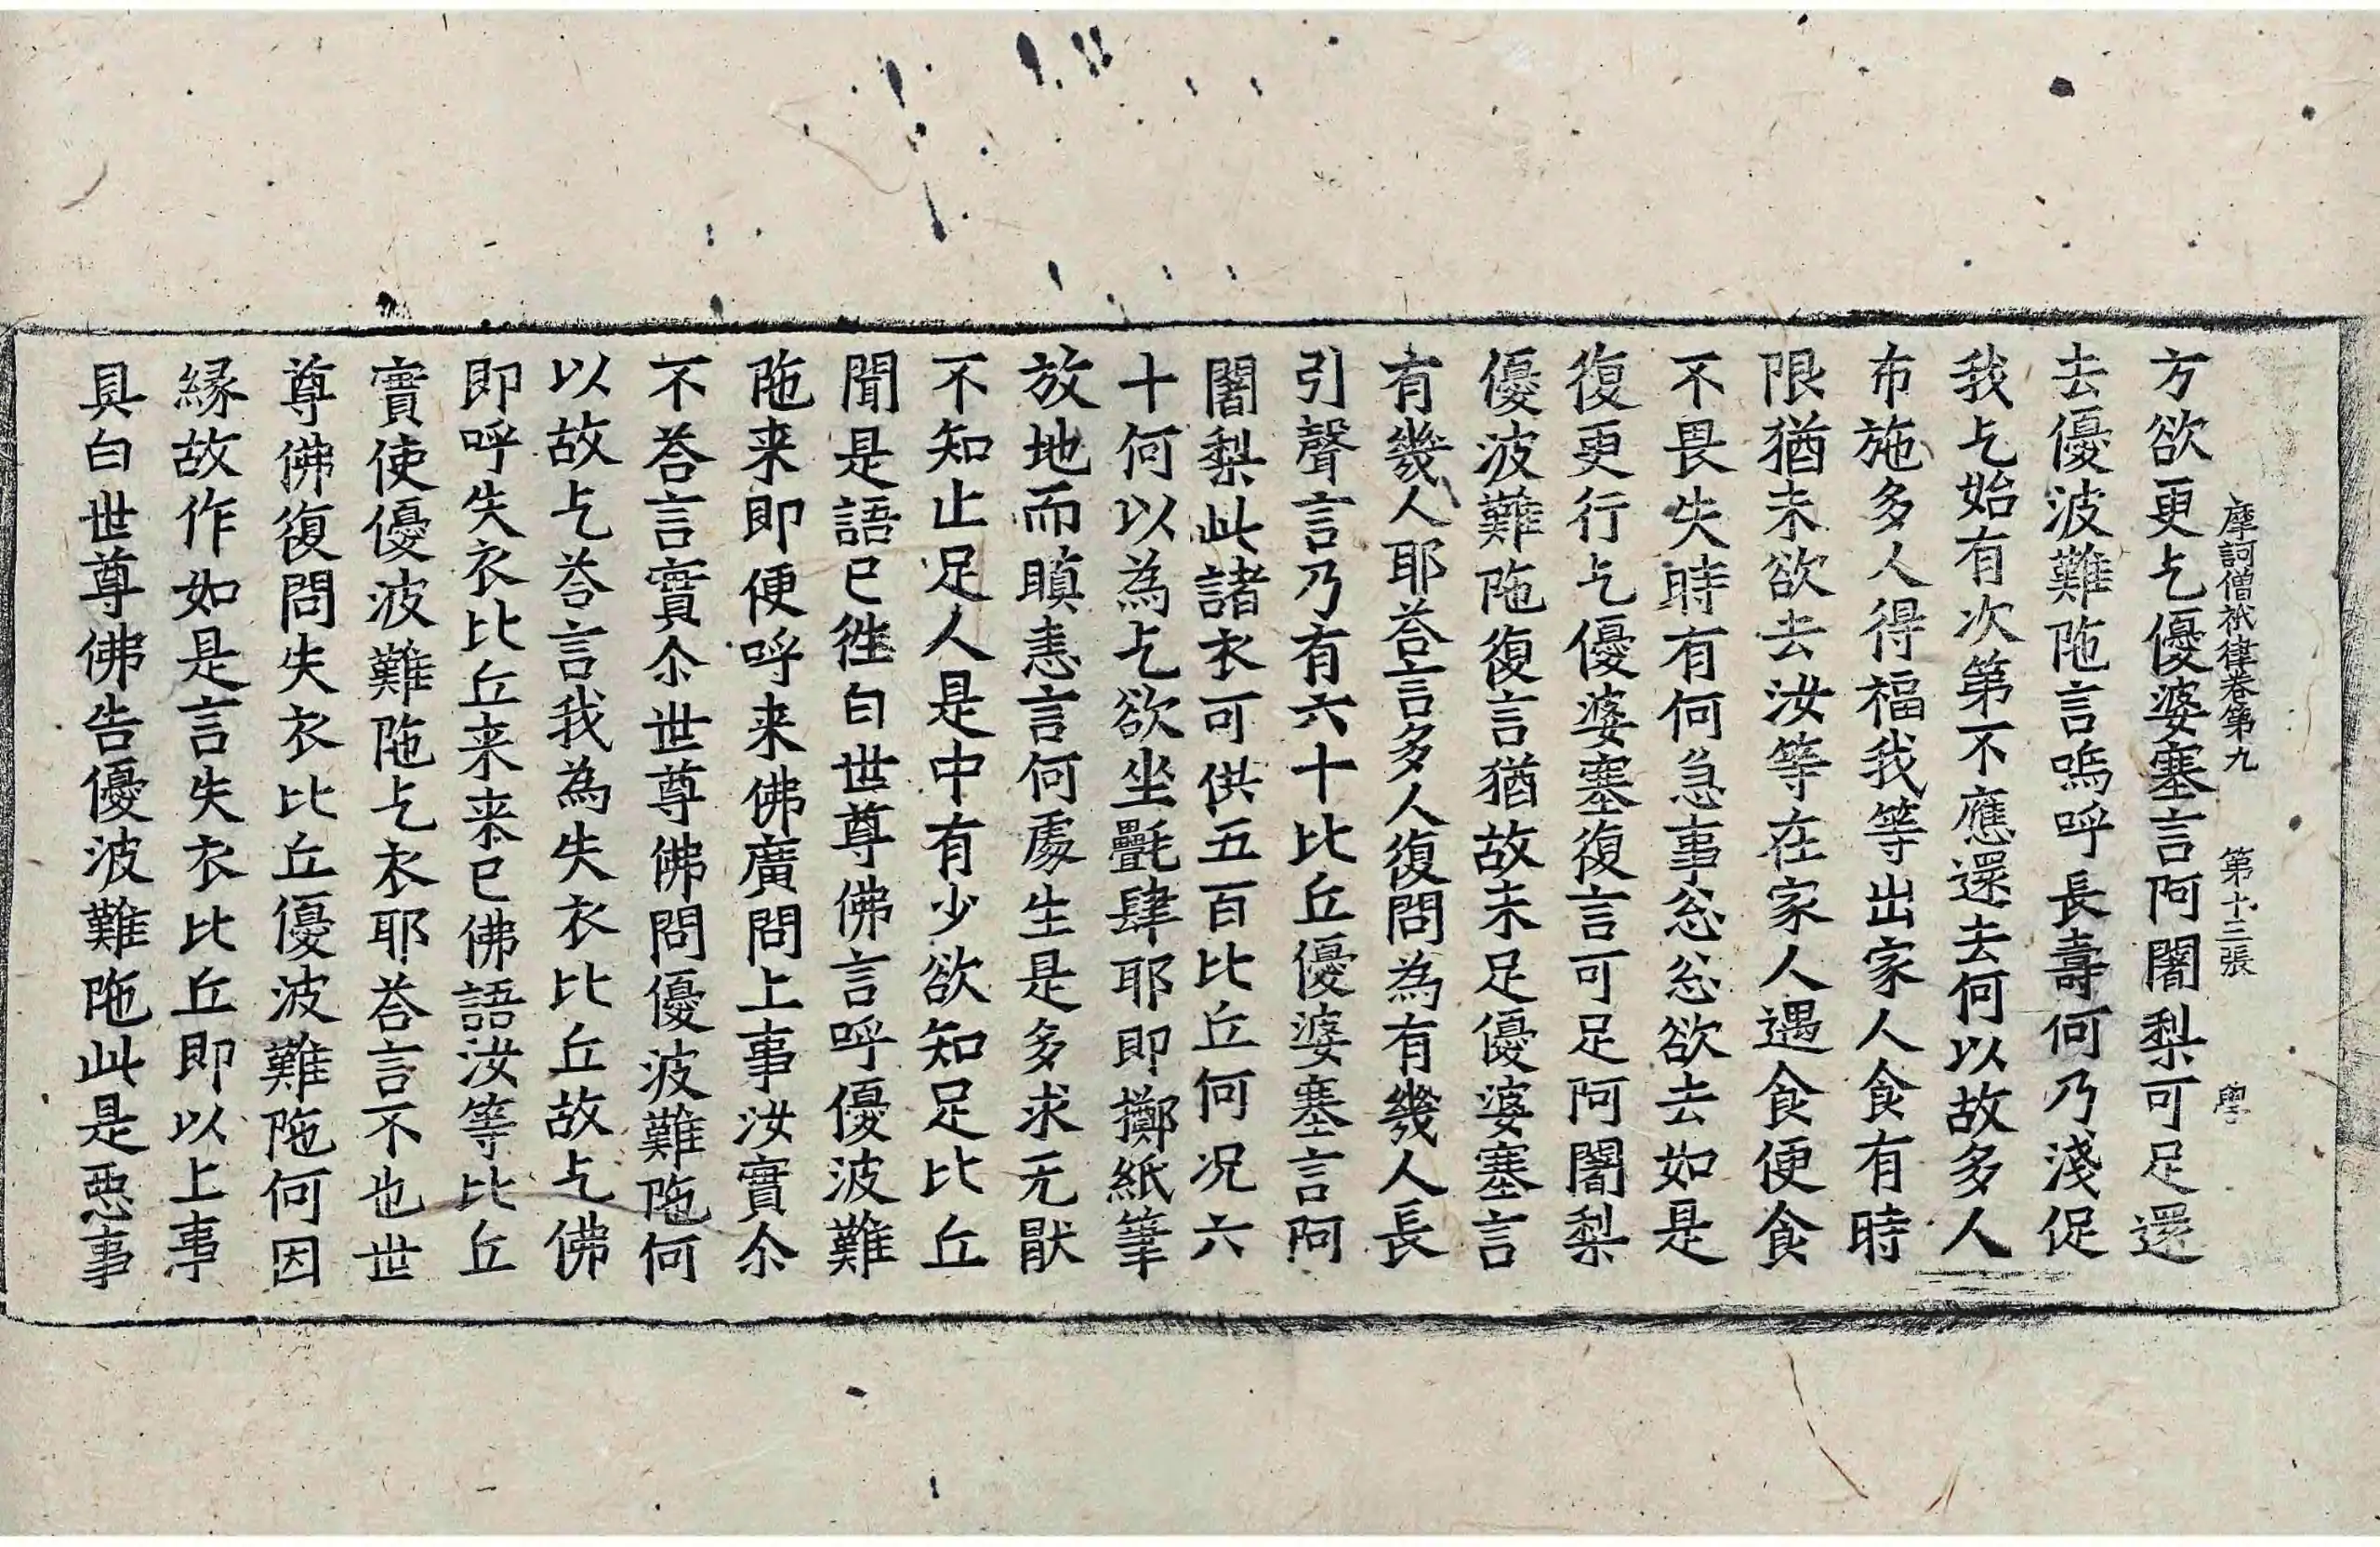 摩訶僧祇律卷第九 第十三張 學
方欲更乞優婆塞言阿闍梨可足還
去優波難陁言嗚呼長壽何乃淺促
我乞始有次第不應還去何以故多人
布施多人得福我等出家人食有時
限猶未欲去汝等在家人遇食便食
不畏失時有何急事忩忩欲去如是
復更行乞優婆塞復言可足阿闍梨
優波難陁復言猶故未足優婆塞言
有幾人耶荅言多人復問為有幾人長
引聲言乃有六十比丘優婆塞言阿
闍梨此諸衣可供五百比丘何況六
十何以為乞欲坐㲲肆耶即擲紙筆
放地而瞋恚言何處生是多求无猒
不知止足人是中有少欲知足比丘
聞是語已徃白世尊佛言呼優波難
陁来即便呼来佛廣問上事汝實尒
不荅言實尒世尊佛問優波難陁何
以故乞荅言我為失衣比丘故乞佛
即呼失衣比丘来来已佛語汝等比丘
實使優波難陁乞衣耶荅言不也世
尊佛復問失衣比丘優波難陁何因
緣故作如是言失衣比丘即以上事
具白世尊佛告優波難陁此是惡事